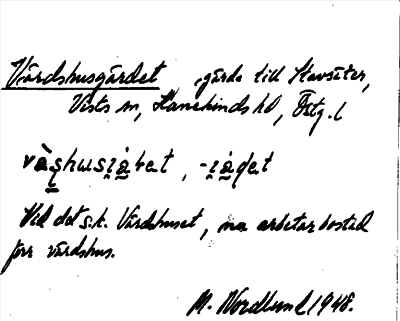 Värdshusgärdet, gärde till Stavsäter,
Vists sn, Hanekinds hd, Östg. l
vàʂhusiạ̊ het, -iạ̊ det
Vid det s.k. Värdshuset, nu arbetarbostad
förr värdshus.
M. Nordlund 1948.